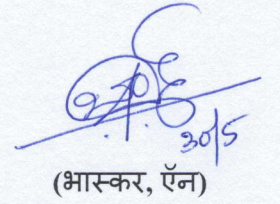 30/5
(भास्कर, ऍन)